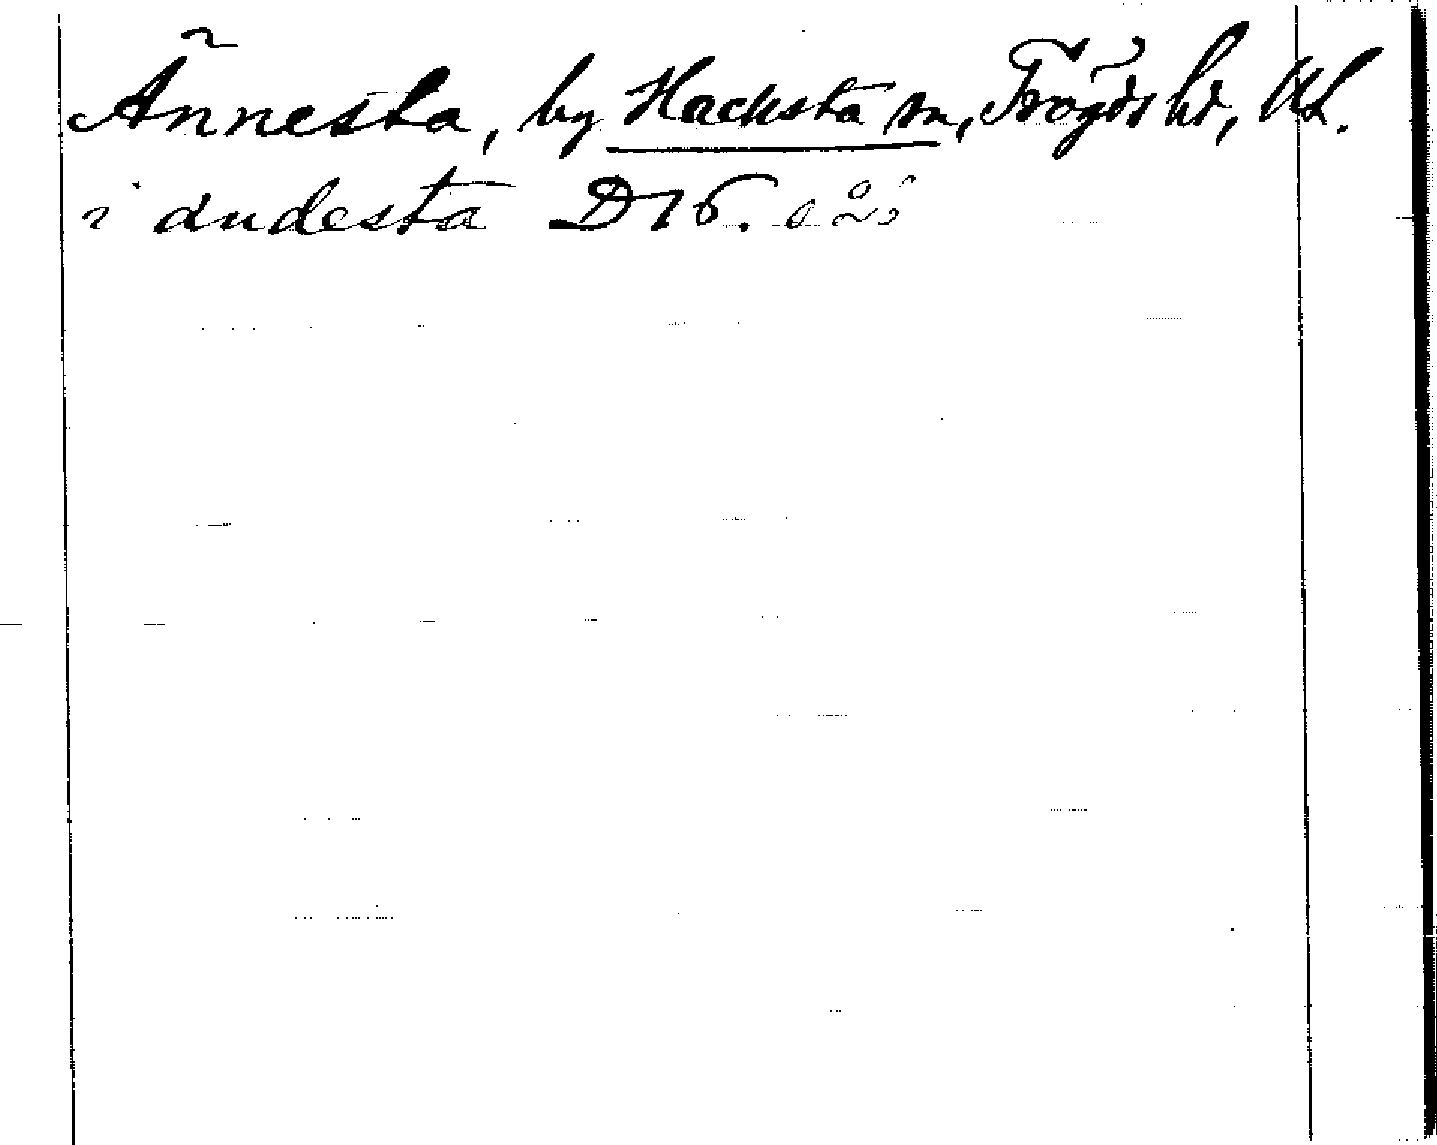 Ännesta, by Hacksta sn, Trögds hd, Upl.
i andesta D 16.